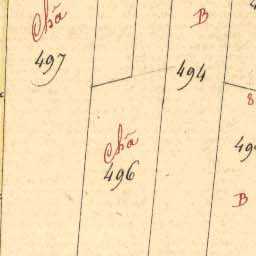 Chã
497
B
494
8
Chã
496
49
B